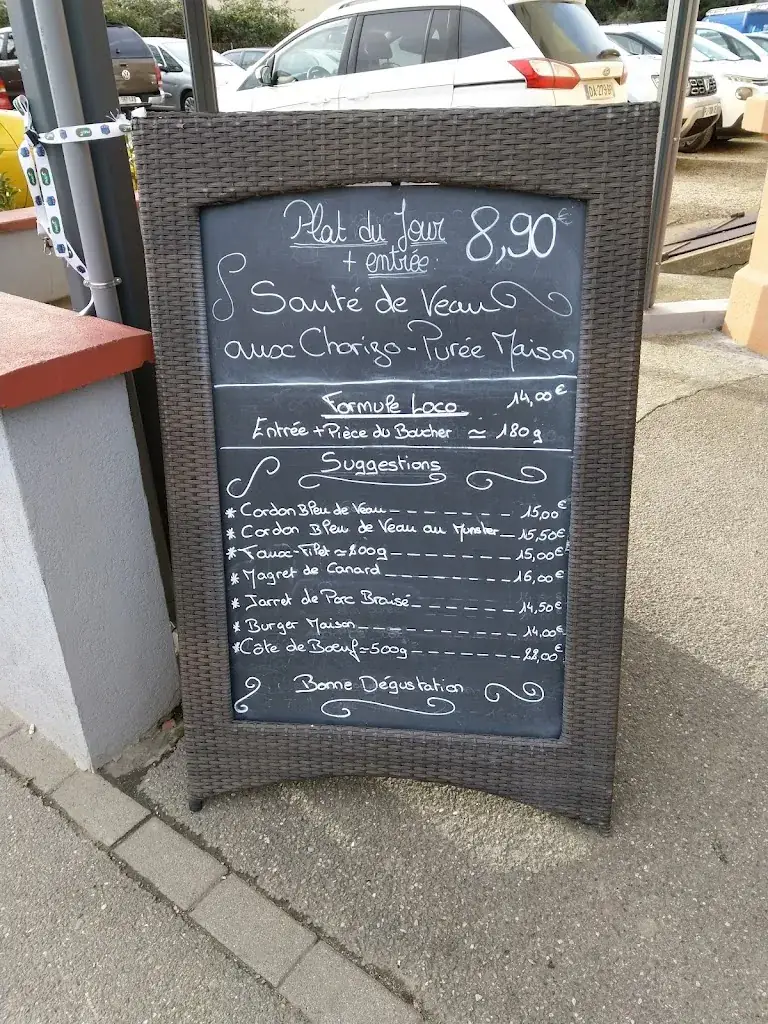 Plat du Jour 8,90€
+ entrée:
Sauté de Veau
aux Chorizo - Purée Maison
Formule Loco 14,00€
Entrée + Pièce du Boucher ≃ 180g
Suggestions
* Cordon Bleu de Veau 15,00€
* Cordon Bleu de Veau au Munster 15,50€
* Faux-Filet ≃ 200g 15,00€
* Magret de Canard 16,00€
* Jarret de Porc Braisé 14,50€
* Burger Maison 14,00€
* Côte de Boeuf ≃ 500g 22,00€
Bonne Dégustation